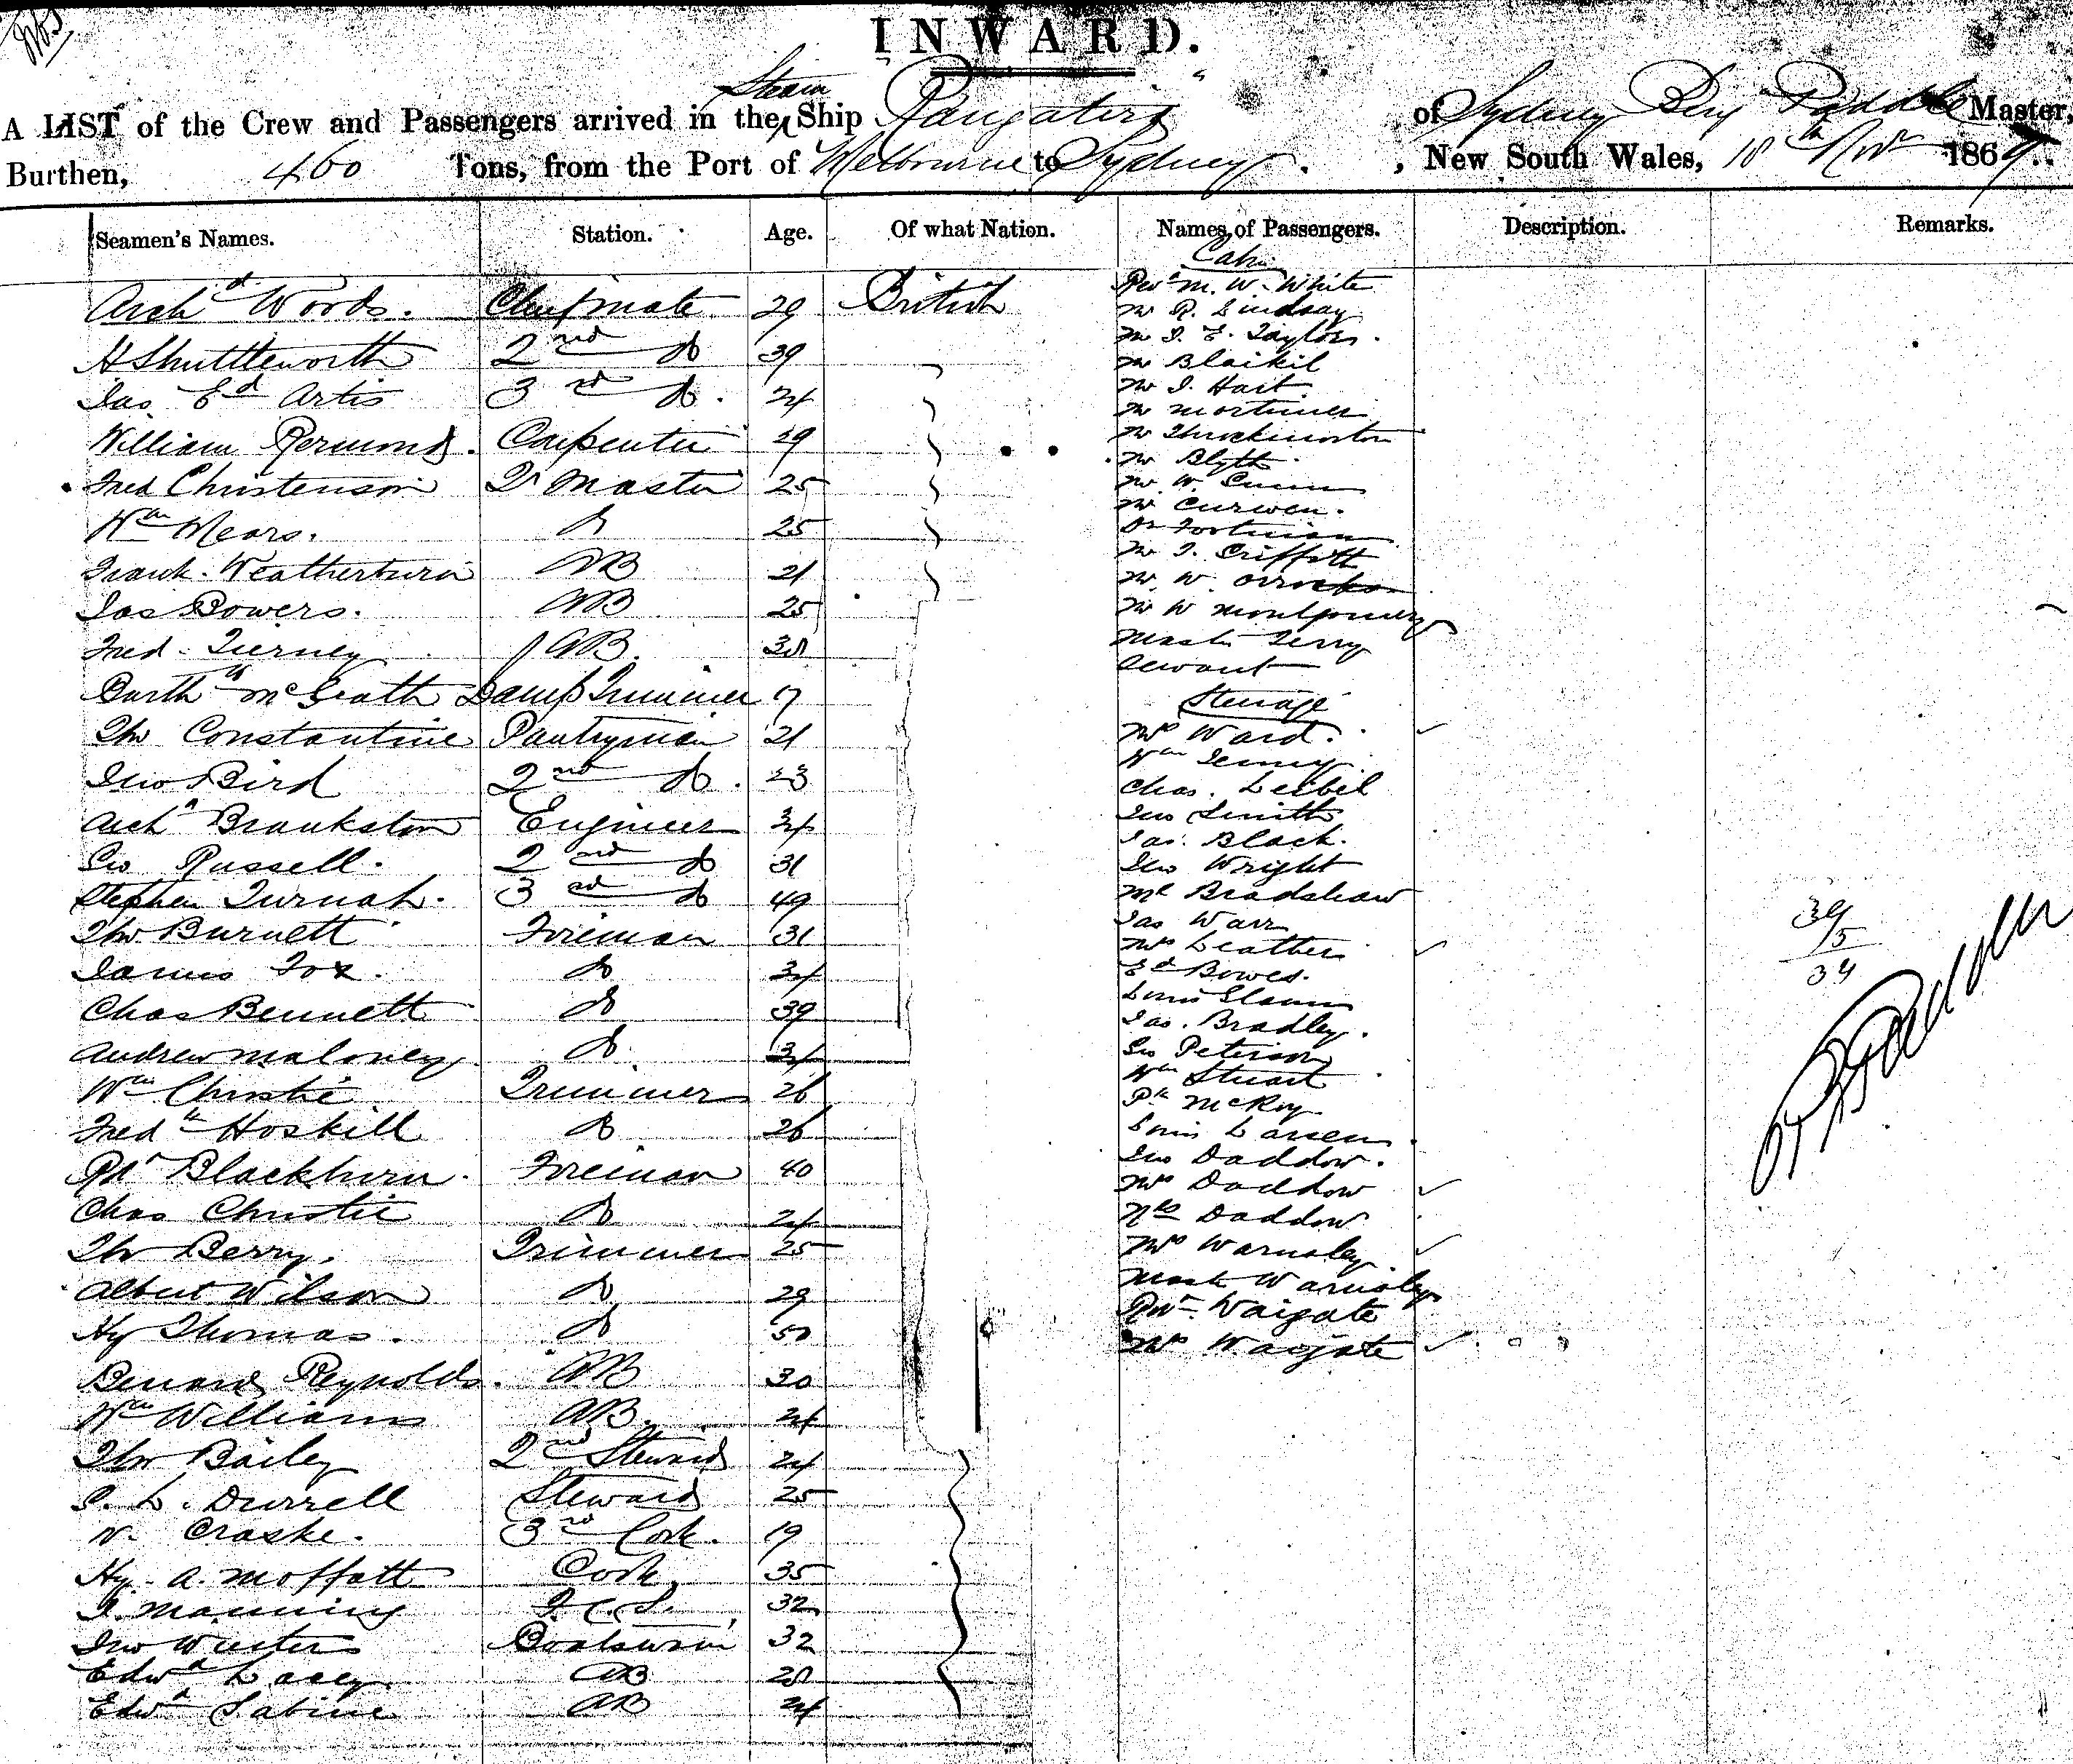 INWARD.
A LIST of the Crew and Passengers arrived in the Steam Ship Rangatira of Sydney Benj Paddle Master,
Burthen, 460 Tons, from the Port of Melbourne to Sydney , New South Wales, 18th Novr 1869
Seamen's Names. Station. Age. Of what Nation. Names of Passengers. Description. Remarks.
Cabin
Archd Woods. Chief mate 29 British
Revd M. W. White
Mr R. Lindsay
Mr J. E. Taylor
H Shuttleworth 2nd Do 39
Mr Blaikil
Jas Ed Artis 3rd Do. 24
Mr J. Hait
Mr Mortimer
William Carpenter 29
Mr Throckmorton
Mr Blyth
Fred Christenson Qr Master 25
Mr W.
Mr Curwen.
Wm Mears. Do 25
Dr
Mr J. Griffitt
Frank Weatherburn AB 21
Mr W.
Jas Bowers. AB 25
Mr W Montgomery
Fred Tierney AB 30
Mastr Terry
Servant
Barthw McGrath Lamp Trimmer 17
Steerage
Thos Constantine Pantryman 21
Mrs Ward.
Wm
Jno Bird 2nd Do. 23
Chas. Leibel
Archd Brankston Engineer 34
Jno Smith
Jas. Black.
Geo Russell. 2nd Do 31
Jno Wright
Stephen Turnah. 3rd Do 49
Mr Bradshaw
Jas Warr
Thos Burnett Fireman 31
Mrs Leather
James Fox. Do 34
Ed Bowes.
39
5
34
Chas Bennett Do 39
Louis
Jas. Bradley.
Andrew Maloney Do 34
Geo Peterson
Wm Stuart
Wm Christie Trimmer 26
Pk McKoy
Fredk Hoskill Do 26
Louis Larsen
Jno Daddow.
Rd Blackburn Fireman 40
Mrs Daddow
Chas Christie Do 24
Daddow
Thos Berry. Trimmer 25
Mrs Warnsley
Albert Wilson Do 29
Mastr Warnsley
Revd Waigate
Hy Thomas. Do 50
Mrs Waigate
Benard Reynolds. AB 30
Wm Williams AB. 24
Thos Bailey 2nd Steward 24
P. L. Durrell Steward 25
W. Craske. 3rd Cook. 19
Hy. A. Moffatt Cook 35
J. Manning 32
Jno Wuster Boatswain 32
Edwd Lacey. AB 20
Edwd Sabine AB 24